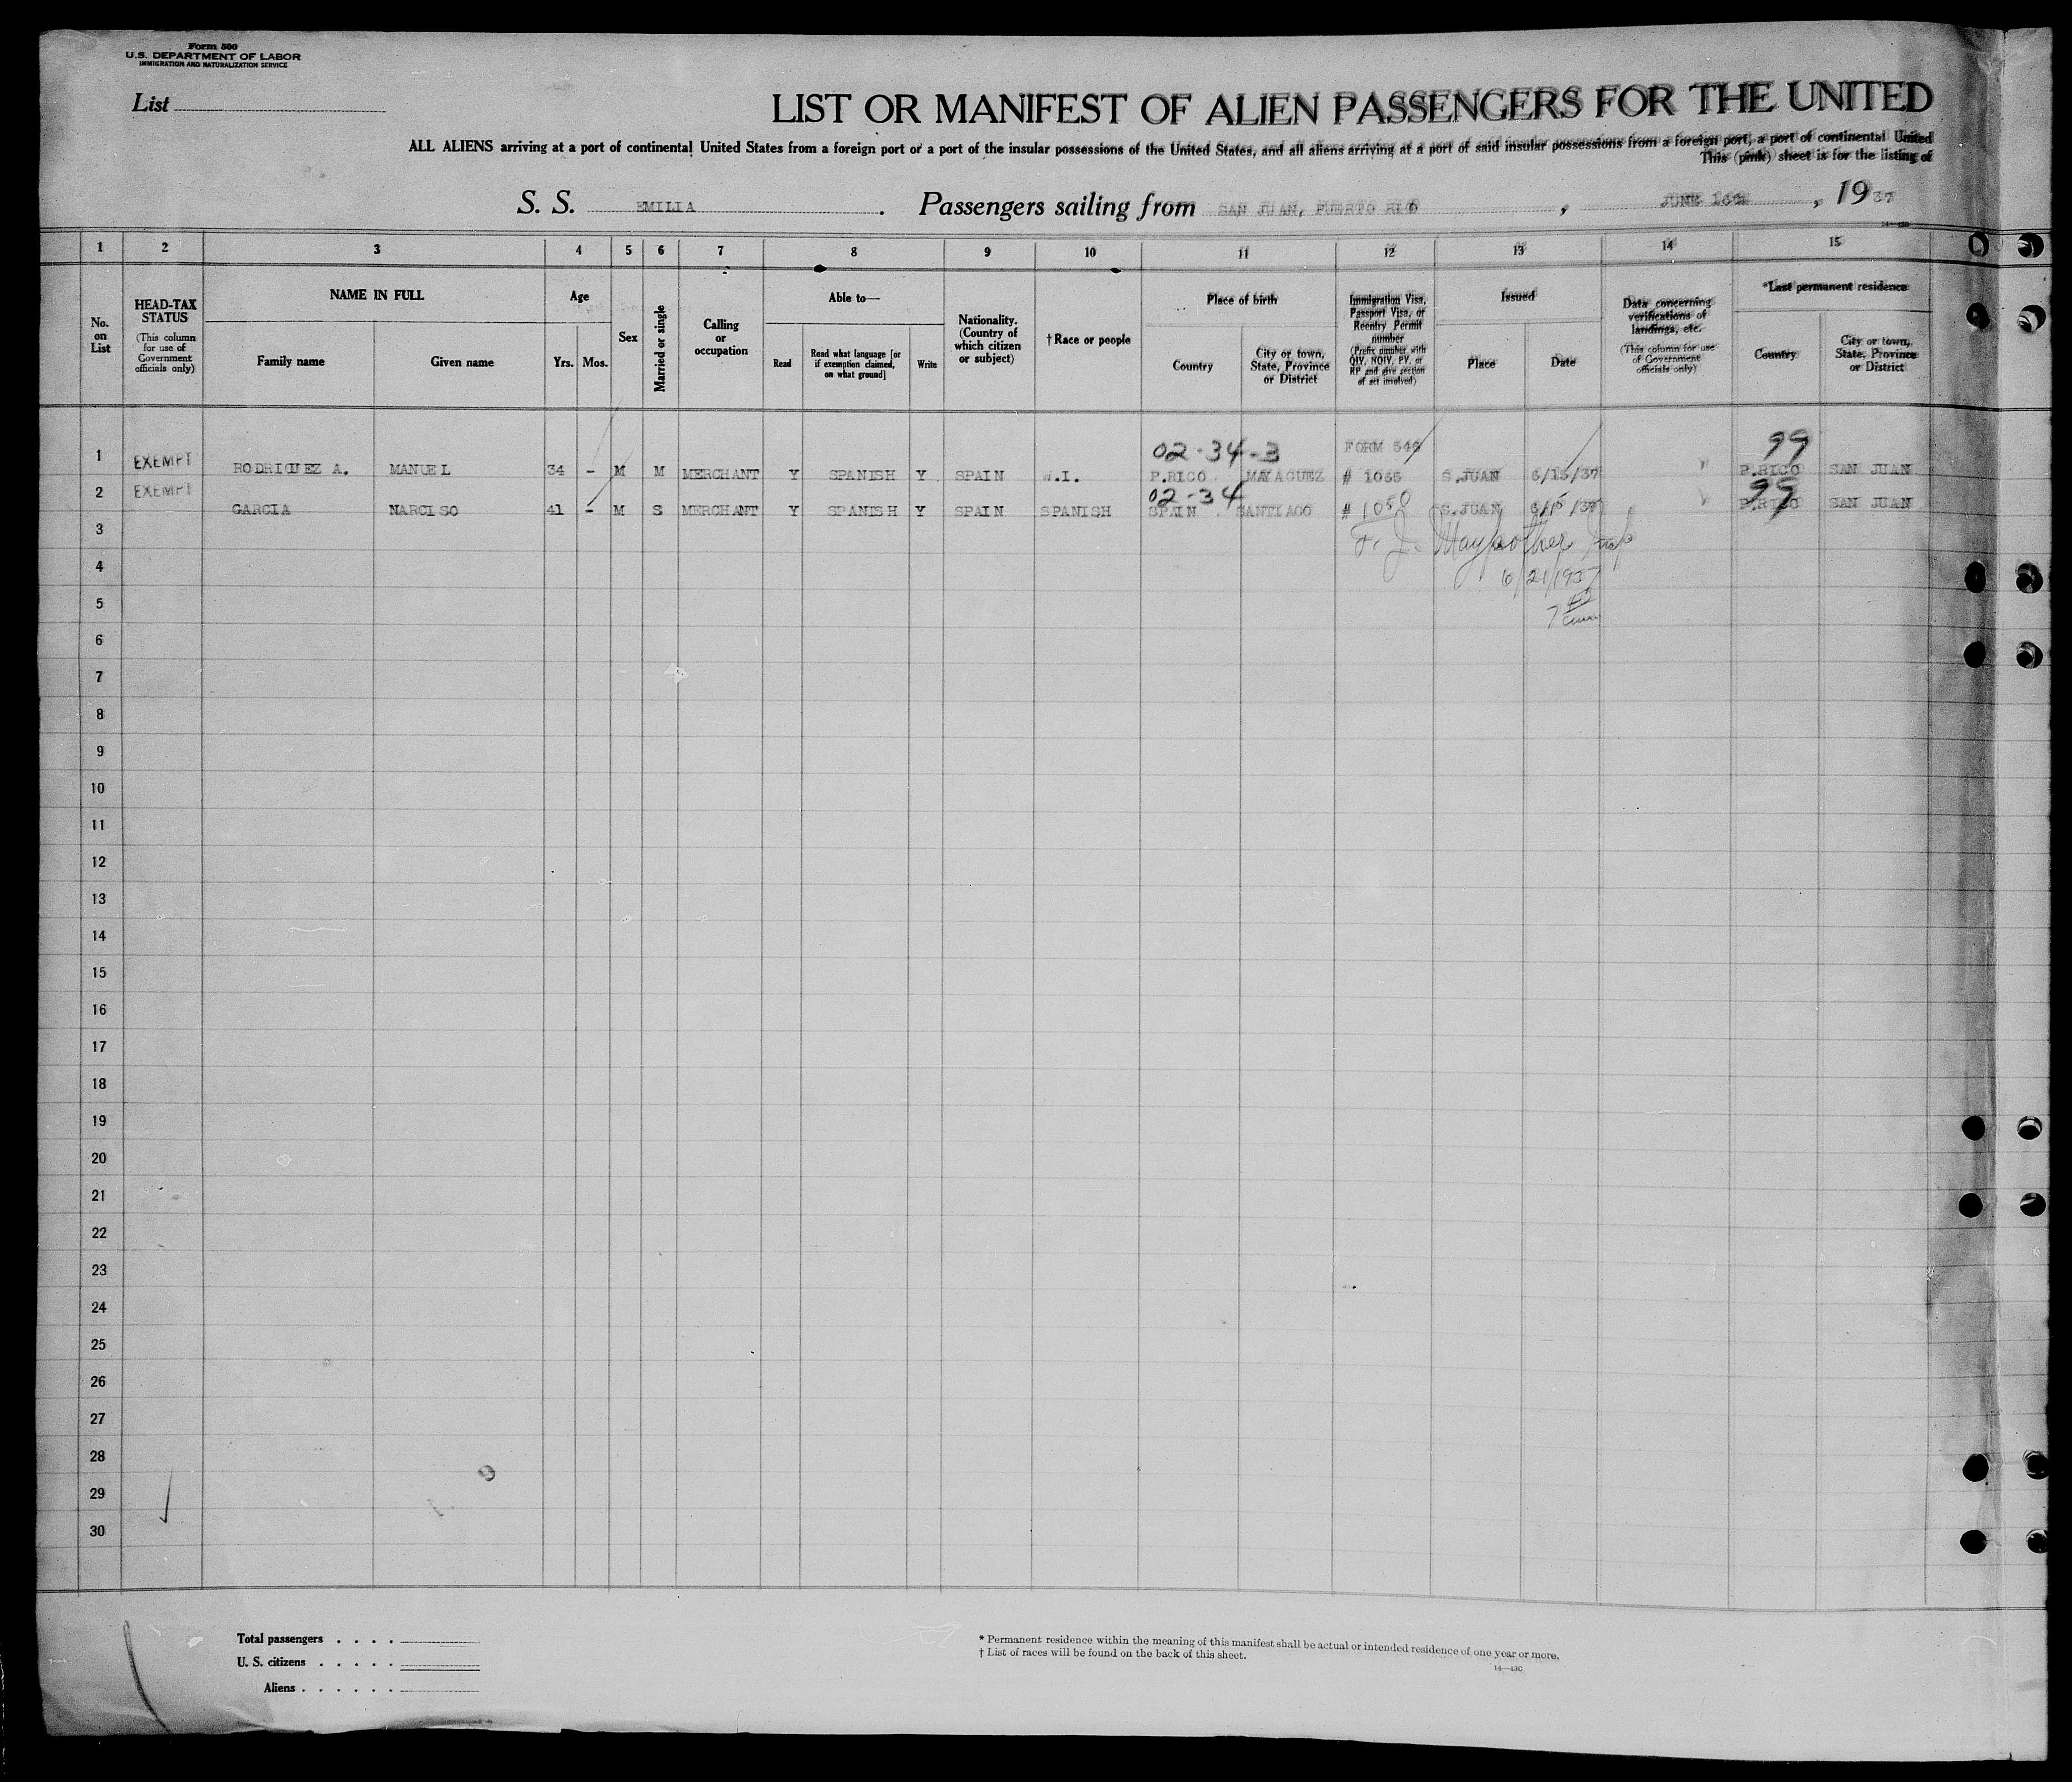 Form 500
U.S. DEPARTMENT OF LABOR
IMMIGRATION AND NATURALIZATION SERVICE
List
LIST OR MANIFEST OF ALIEN PASSENGERS FOR THE UNITED
ALL ALIENS arriving at a port of continental United States from a foreign port or a port of the insular possessions of the United States, and all aliens arriving at a port of said insular possessions from a foreign port, a port of continental United
This (pink) sheet is for the listing of
S. S. EMILIA. Passengers sailing from SAN JUAN, PUERTO RICO, JUNE, 1937
1 2 3 4 5 6 7 8 9 10 11 12 13 14 15
No. on List
HEAD-TAX STATUS
(This column for use of Government officials only)
NAME IN FULL
Family name
Given name
Age
Yrs. Mos.
Sex
Married or single
Calling or occupation
Able to—
Read
Read what language [or if exemption claimed, on what ground]
Write
Nationality. (Country of which citizen or subject)
† Race or people
Place of birth
Country
City or town, State, Province or District
Immigration Visa, Passport Visa, or Reentry Permit number
(Prefix number with QIV, NQIV, PV, or RP and give section of act involved)
Issued
Place
Date
Data concerning verifications of landings, etc.
(This column for use of Government officials only)
*Last permanent residence
Country
City or town, State, Province or District
02-34-3 FORM 546 99
1 EXEMPT RODRIGUEZ A. MANUEL 34 - M M MERCHANT Y SPANISH Y SPAIN W.I. P.RICO MAYAGUEZ # 1065 S.JUAN 6/15/37 P.RICO SAN JUAN
02-34 99
2 EXEMPT GARCIA NARCISO 41 - M S MERCHANT Y SPANISH Y SPAIN SPANISH SPAIN SANTIAGO # 1050 S.JUAN 6/15/37 P.RICO SAN JUAN
3
6/21/1937
4
5
6
7
8
9
10
11
12
13
14
15
16
17
18
19
20
21
22
23
24
25
26
27
28
29
30
Total passengers
U. S. citizens
Aliens
* Permanent residence within the meaning of this manifest shall be actual or intended residence of one year or more.
† List of races will be found on the back of this sheet.